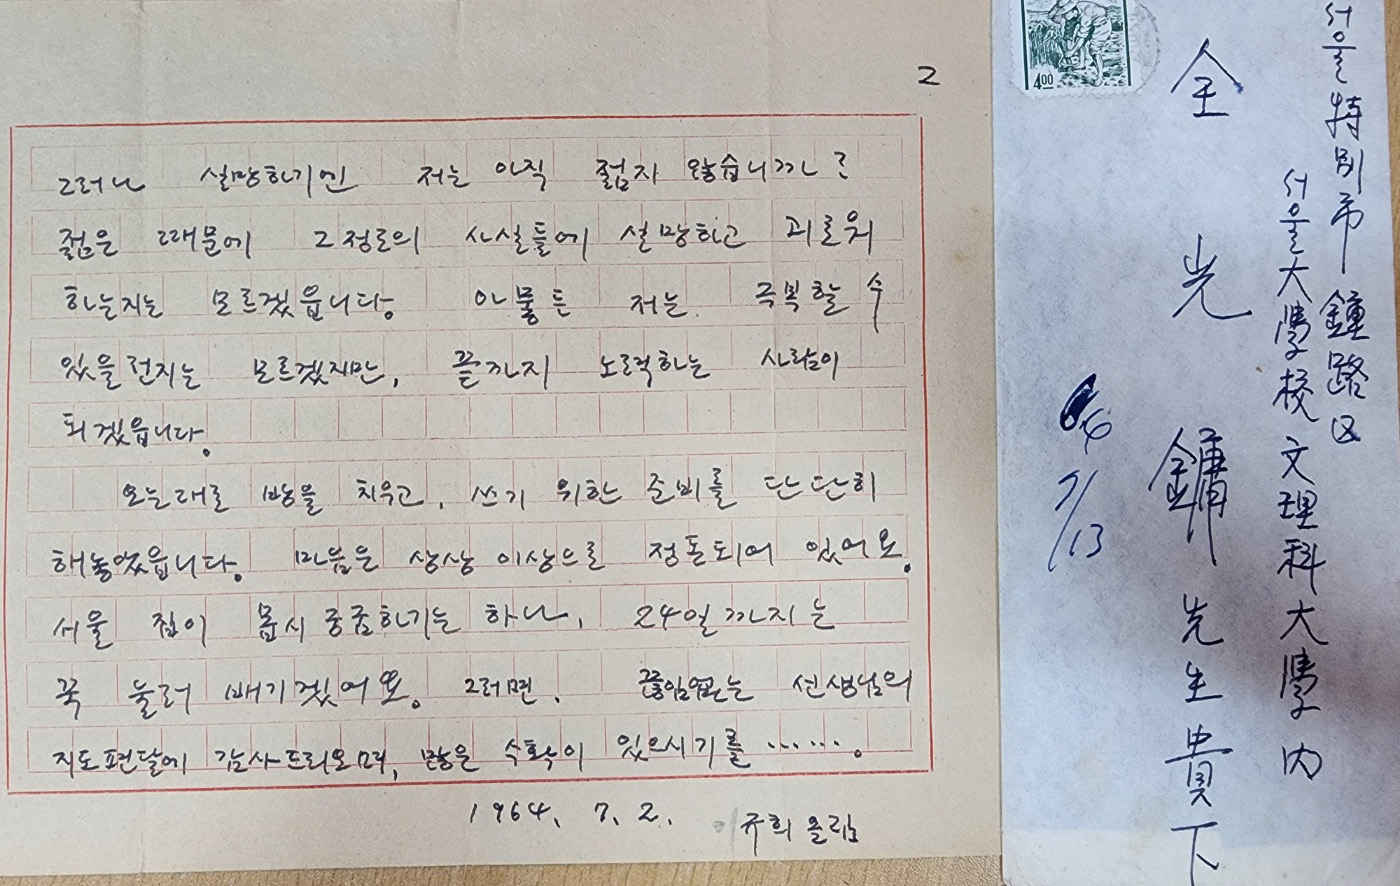 2
그러나 실망하기엔 저는 아직 젊지 않습니까?
젊은 때문에 그 정도의 사실들에 실망하고 괴로워
하는지는 모르겠읍니다. 아뭏튼 저는 극복할 수
있을런지는 모르겠지만, 끝까지 노력하는 사람이
되겠읍니다.
오는대로 방을 치우고, 쓰기 위한 준비를 단단히
해놓았읍니다. 마음은 상상 이상으로 정돈되어 있어요.
서울 집이 몹시 궁굼하기는 하나, 24일까지는
꾹 눌러 배기겠어요. 그러면, 끊임없는 선생님의
지도편달에 감사드리오며, 많은 수확이 있으시기를 …….
1964. 7. 2. 규희 올림
4.00
서울特別市 鍾路区
서울大學校 文理科大學 內
全光鏞 先生 貴下
64
7/13